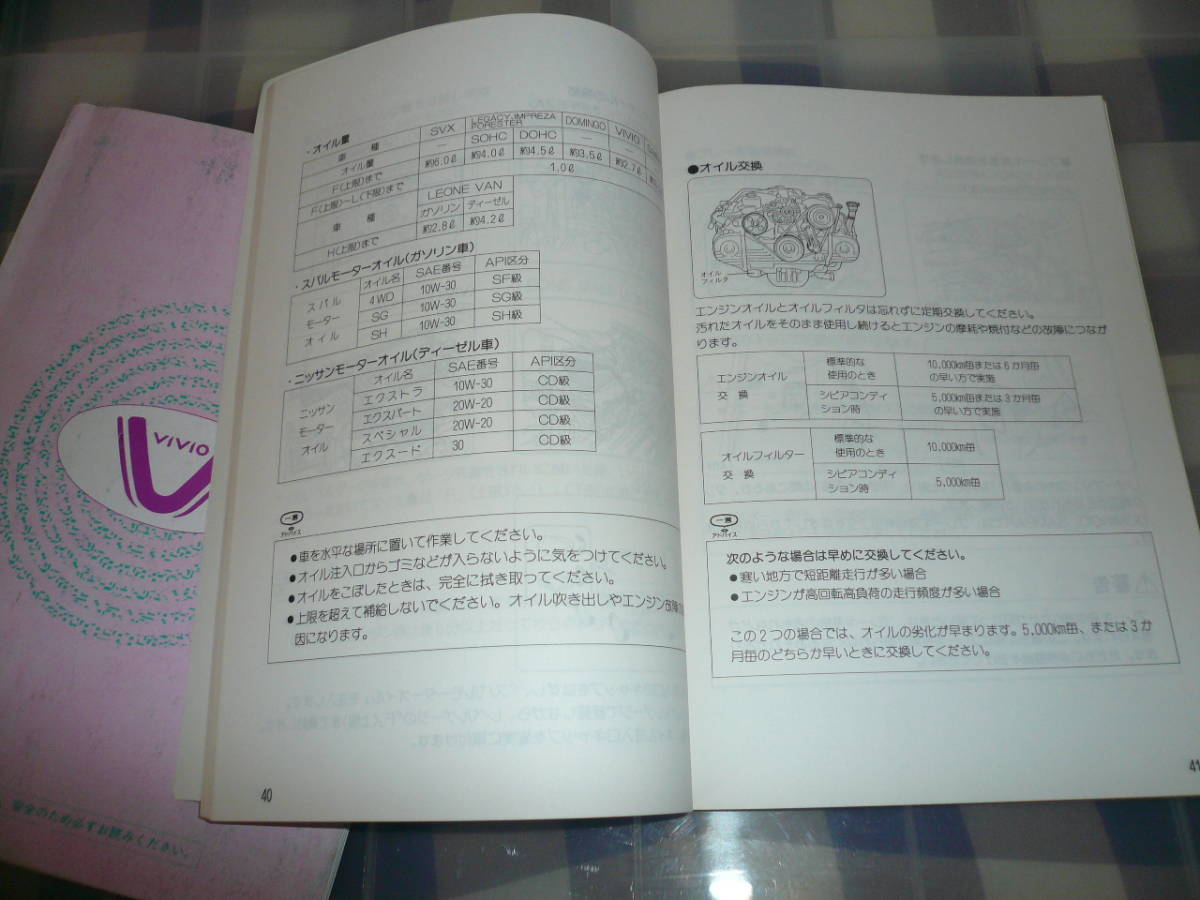 ・オイル量
車種 SVX LEGACY,IMPREZA FORESTER DOMINGO VIVIO
オイル量 — SOHC DOHC — —
F(上限)まで 約6.0ℓ 約4.0ℓ 約4.5ℓ 約3.5ℓ 約2.7ℓ
F(上限)〜L(下限)まで 1.0ℓ
車種 LEONE VAN
ガソリン ディーゼル
H(上限)まで 約2.8ℓ 約4.2ℓ
・スバルモーターオイル(ガソリン車)
スバルモーターオイル オイル名 SAE番号 API区分
4WD 10W-30 SF級
SG 10W-30 SG級
SH 10W-30 SH級
・ニッサンモーターオイル(ディーゼル車)
ニッサンモーターオイル オイル名 SAE番号 API区分
エクストラ 10W-30 CD級
エクスパート 20W-20 CD級
スペシャル 20W-20 CD級
エクスード 30 CD級
一言
アドバイス
●車を水平な場所に置いて作業してください。
●オイル注入口からゴミなどが入らないように気をつけてください。
●オイルをこぼしたときは、完全に拭き取ってください。
●上限を超えて補給しないでください。オイル吹き出しやエンジン故障
因になります。
40
●オイル交換
オイル
フィルタ
エンジンオイルとオイルフィルタは忘れずに定期交換してください。
汚れたオイルをそのまま使用し続けるとエンジンの摩耗や焼付などの故障につなが
ります。
エンジンオイル交換 標準的な使用のとき 10,000km毎または6か月毎の早い方で実施
シビアコンディション時 5,000km毎または3か月毎の早い方で実施
オイルフィルター交換 標準的な使用のとき 10,000km毎
シビアコンディション時 5,000km毎
一言
アドバイス
次のような場合は早めに交換してください。
●寒い地方で短距離走行が多い場合
●エンジンが高回転高負荷の走行頻度が多い場合
この2つの場合では、オイルの劣化が早まります。5,000km毎、または3か
月毎のどちらか早いときに交換してください。
41
VIVIO
安全のため必ずお読みください。